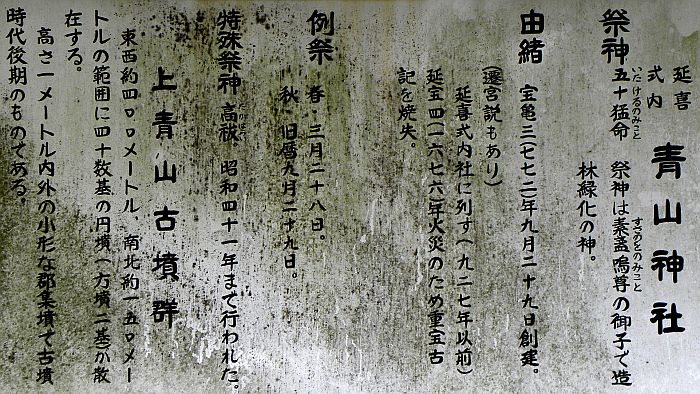 延喜
式内
青山神社
祭神 五十猛命 祭神は素盞嗚尊の御子で造
いたけるのみこと
すさのをのみこと
林緑化の神。
由緒 宝亀三(七七二)年九月二十九日創建。
(遷宮説もあり)
延喜式内社に列す(九二七年以前)
延宝四(一六七六)年火災のため重宝古
記を焼失。
例祭 春・三月二十八日。
秋・旧暦九月二十九日。
特殊祭神 高祓 昭和四十一年まで行われた。
上青山古墳群
東西約四〇〇メートル、南北約一五〇メー
トルの範囲に四十数基の円墳(方墳二基)が散
在する。
高さ一メートル内外の小形な群集墳で古墳
時代後期のものである。